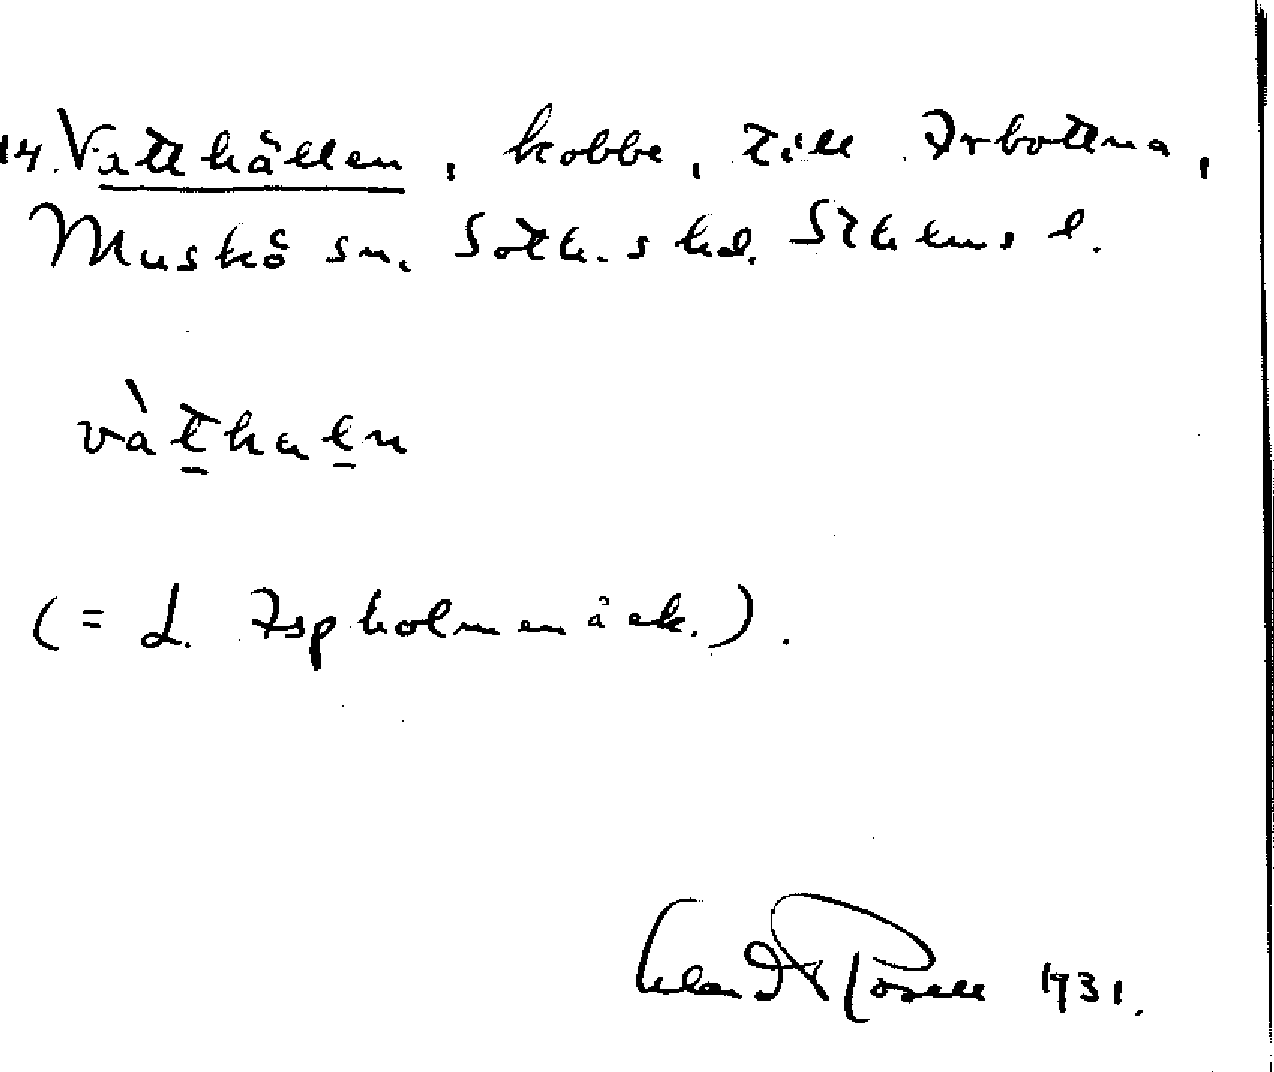 14. Vatthällen, kobbe, till Arbottna,
Muskö sn. Soth. s hd. Sthlms l.
vàthalņ
(= L. Aspholmen å ek.).
Erland Rosell 1931.